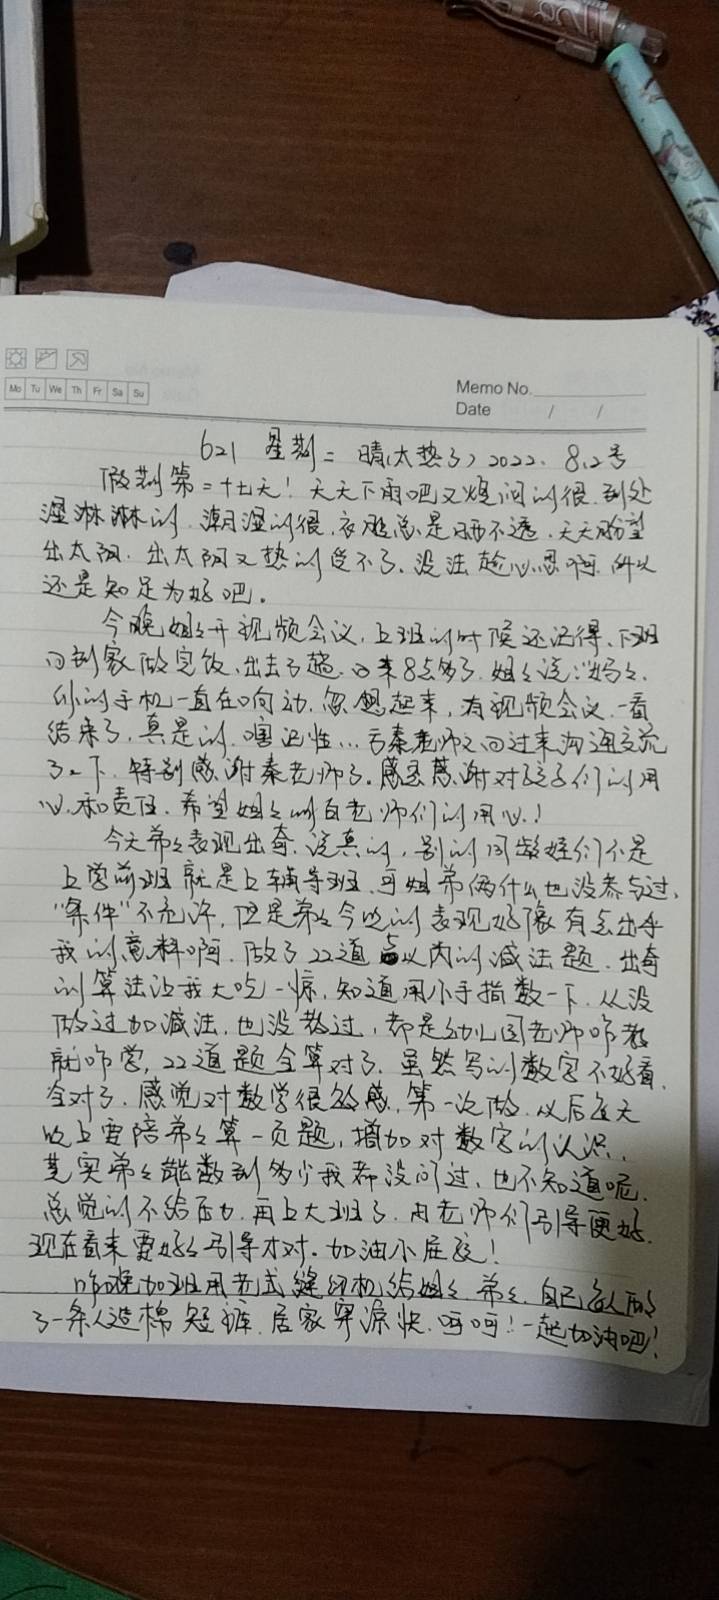 Mo Tu We Th Fr Sa Su
Memo No.
Date / /
621 星期二 晴(太热了) 2022. 8.2号
假期第二十七天！天天下雨吧又烦闷的很.到处
湿淋淋的.潮湿的很,衣服总是晒不透.天天盼望
出太阳.出太阳又热的受不了.没法趁心思啊.所以
还是知足为好吧。
今晚姐々开视频会议,上班的时候还记得、下班
回到家做完饭、出去了趟.回来8点多了.姐々说:妈々.
你的手机一直在响动.忽想起来,有视频会议.一看
结束了,真是的.啥记性...亏秦老师又回过来沟通交流
了一下.特别感谢秦老师了。感恩感谢对孩子们的用
心.和责任.希望姐々明白老师们的用心！
今天弟々表现出奇.说真的,别的同龄娃们不是
上学前班就是上辅导班.可姐弟俩什么也没参与过、
"条件"不允许,但是弟々今晚的表现好像有点出乎
我的意料啊.做了22道 以内的减法题.出奇
的算法让我大吃一惊,知道用小手指数一下.从没
做过加减法,也没教过,都是幼儿园老师咋教
就咋学,22道题全算对了.虽然写的数字不好看.
全对了.感觉对数学很敏感.第一次做.以后每天
晚上要陪弟々算一页题,增加对数字的认识.
其实弟々能数到多少我都没问过、也不知道呢.
总觉的不给压力.再上大班了.由老师们引导更好.
现在看来要好々引导才对。加油小屁孩！
昨晚加班用老式缝纫机给姐々.弟々.自己每人
了一条人造棉短裤.居家穿凉快.呵呵！一起加油吧！